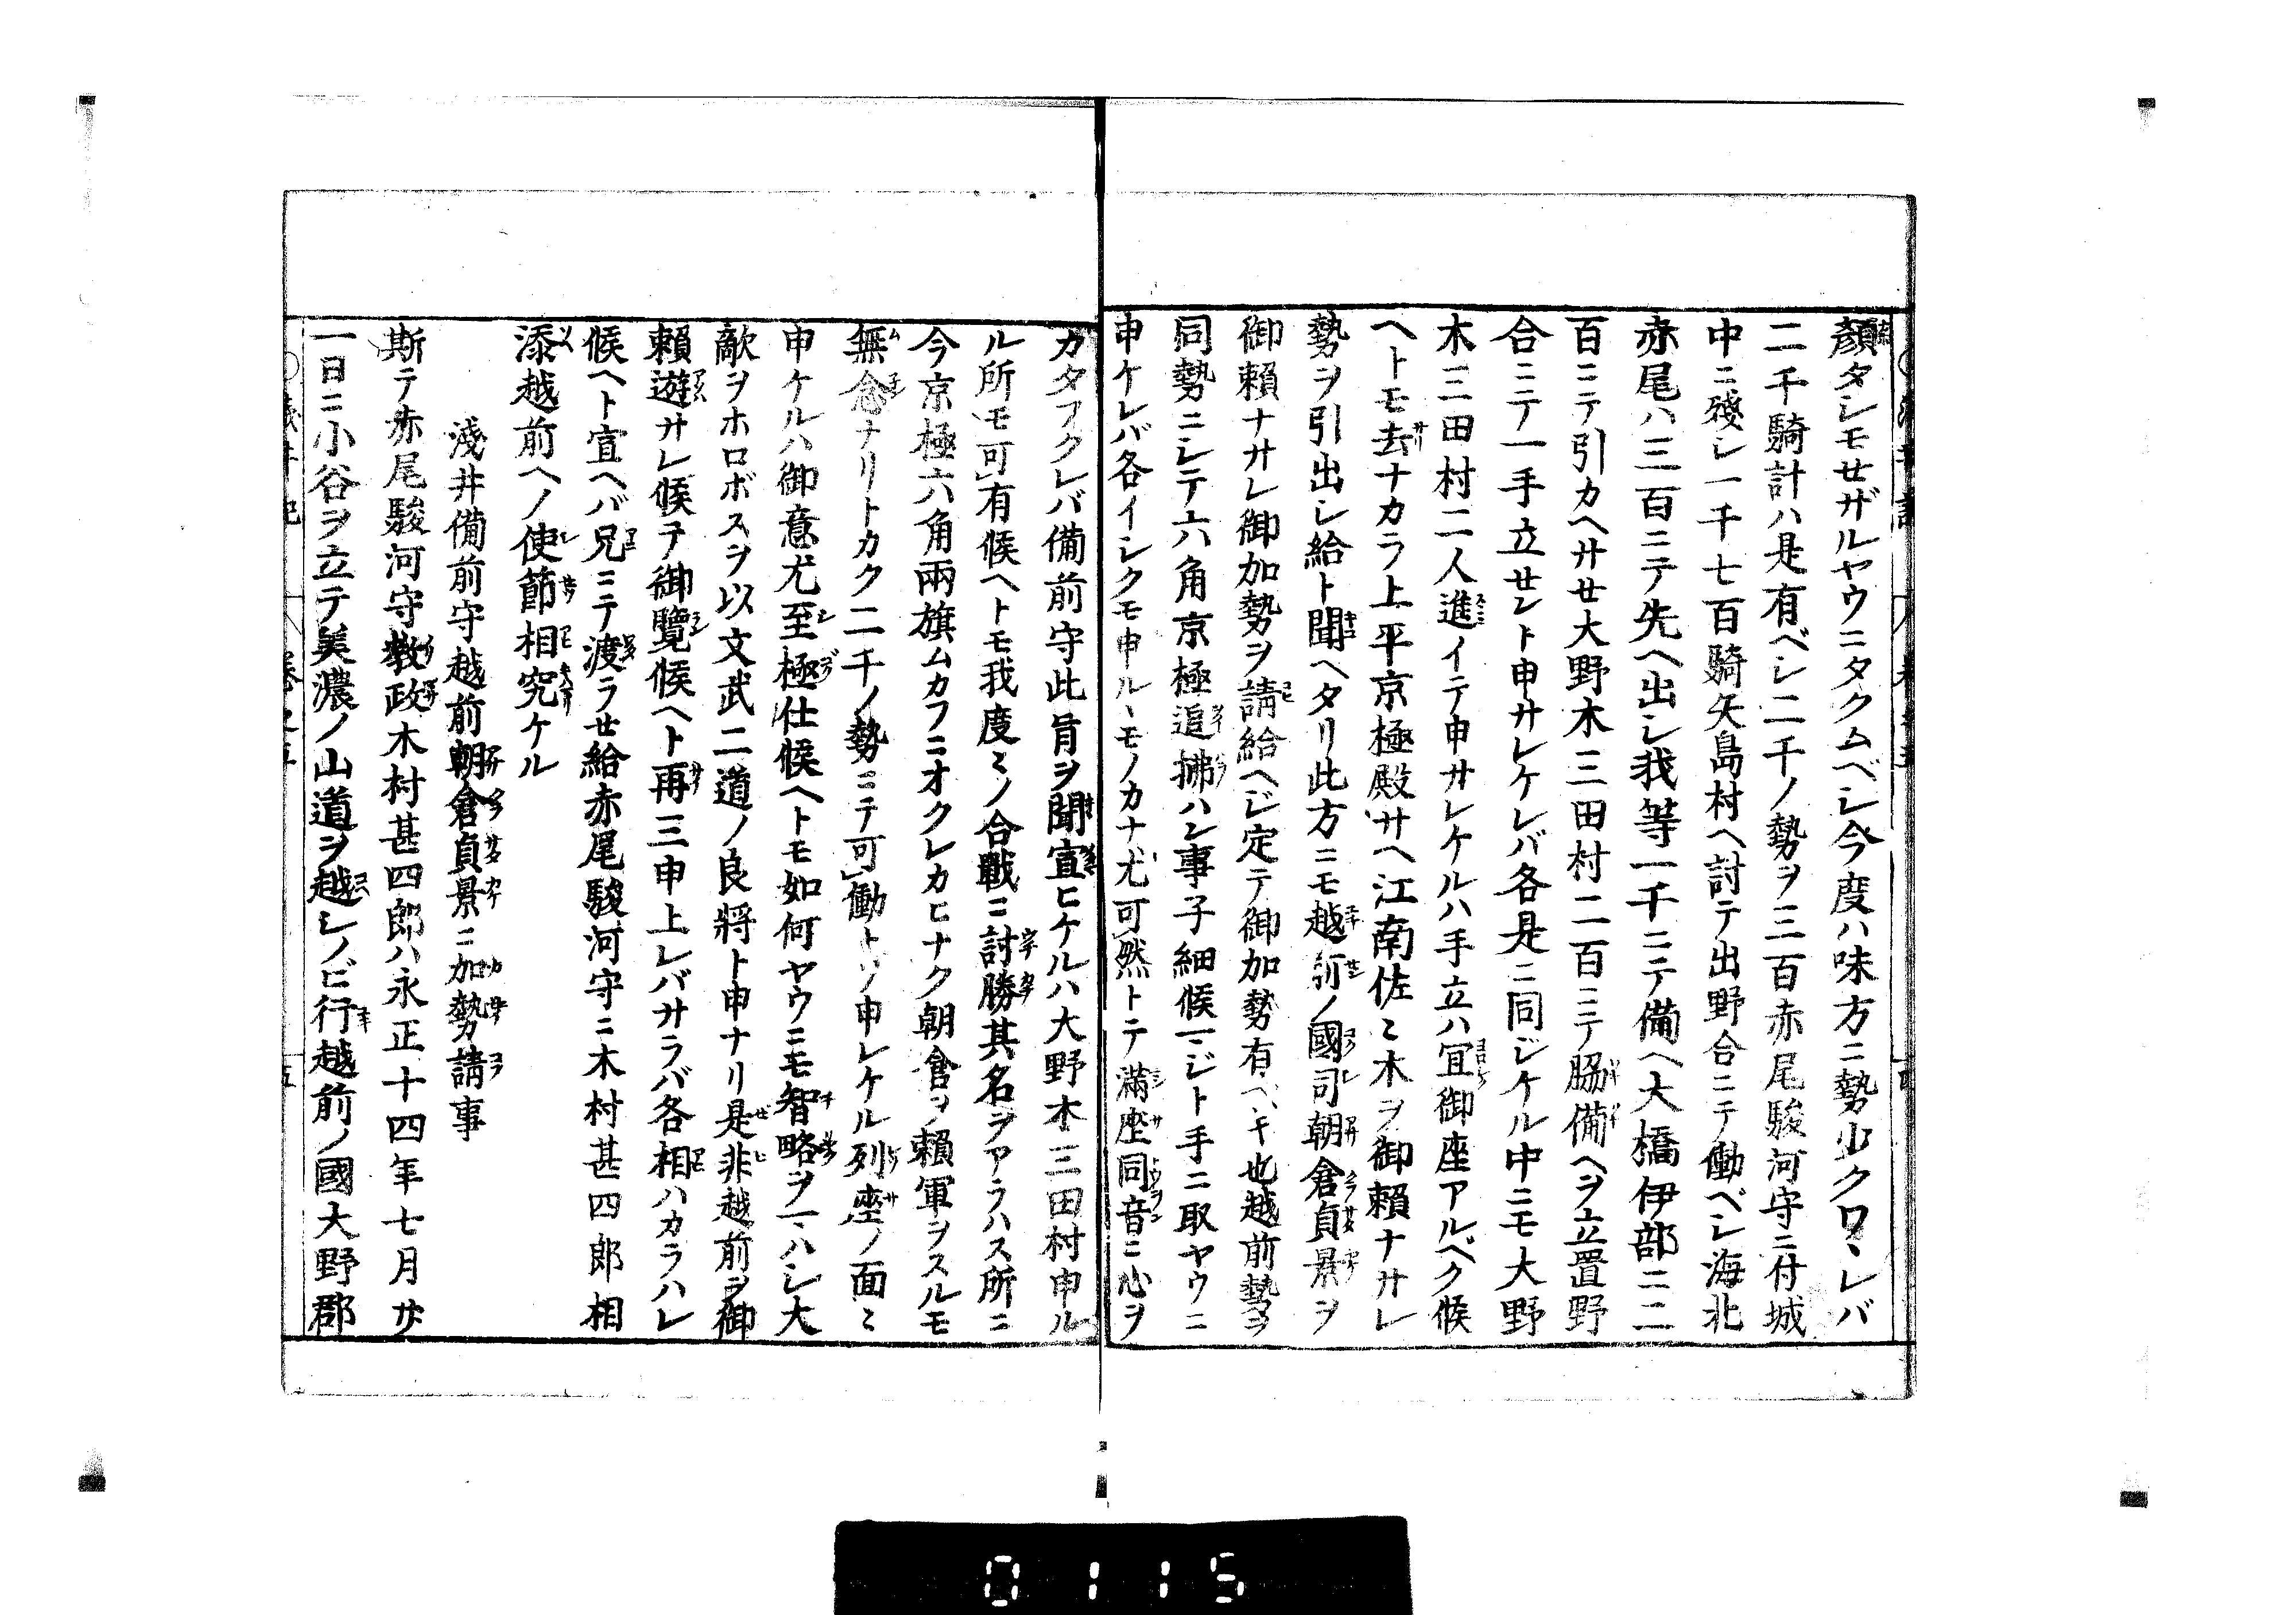 顏タレモセザルヤウニタクムベシ今度ハ味方ニ勢少クワヽレバ
二千騎計ハ是有ベシ二千ノ勢ヲ三百赤尾駿河守ニ付城
中ニ殘シ一千七百騎矢島村ヘ討テ出野合ニテ働ベシ海北
赤尾ハ三百ニテ先ヘ出シ我等一千ニテ備ヘ大橋伊部ニ二
百ニテ引カヘサセ大野木三田村二百ニテ脇備ヘヲ立置野
合ニテ一手立セント申サレケレバ各是ニ同ジケル中ニモ大野
木三田村二人進イテ申サレケルハ手立ハ宜御座アルベク候
ヘトモ去ナカラ上平京極殿サヘ江南佐々木ヲ御賴ナサレ
勢ヲ引出シ給ト聞ヘタリ此方ニモ越前ノ國司朝倉貞景ヲ
御賴ナサレ御加勢ヲ請給ヘジ定テ御加勢有ベキ也越前勢ヲ
同勢ニシテ六角京極追拂ハン事子細候マジト手ニ取ヤウニ
申ケレバ各イシクモ申ルヽモノカナ尤可然トテ滿座同音ニ心ヲ
カタフクレバ備前守此旨ヲ聞宣ヒケルハ大野木三田村申ル
ル所モ可有候ヘトモ我度々ノ合戰ニ討勝其名ヲアラハス所ニ
今京極六角兩旗ムカフニオクレカヒナク朝倉ヲ賴軍ヲスルモ
無念ナリトカク二千ノ勢ニテ可働トソ申レケル列座ノ面々
申ケルハ御意尤至極仕候ヘトモ如何ヤウニモ智略ヲマハシ大
敵ヲホロボスヲ以文武二道ノ良將ト申ナリ是非越前ヲ御
賴遊サレ候テ御覽候ヘト再三申上レバサラバ各相ハカラハレ
候ヘト宣ヘバ兄ニテ渡ラセ給赤尾駿河守ニ木村甚四郎相
添越前ヘノ使節相究ケル
淺井備前守越前朝倉貞景ニ加勢請事
斯テ赤尾駿河守教政木村甚四郎ハ永正十四年七月廿
一日ニ小谷ヲ立テ美濃ノ山道ヲ越シノビ行越前ノ國大野郡
0115